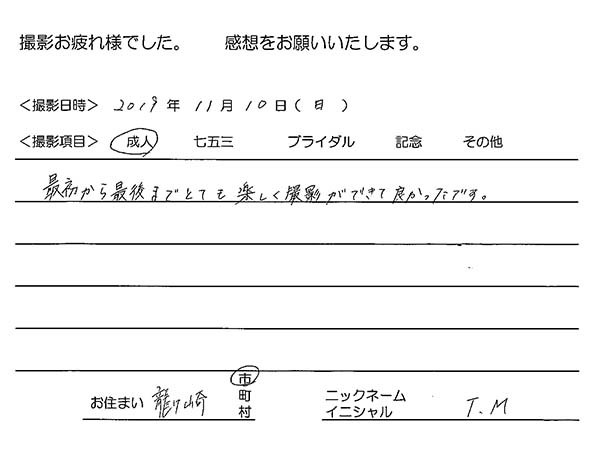 撮影お疲れ様でした。 感想をお願いいたします。
＜撮影日時＞ 2019 年 11 月 10 日 ( 日 )
＜撮影項目＞ 成人 七五三 ブライダル 記念 その他
最初から最後までとても楽しく撮影ができて良かったです。
お住まい 龍ケ崎 市 町 村 ニックネーム イニシャル T.M